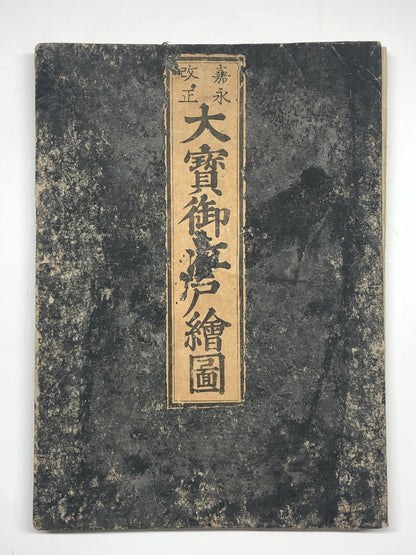 嘉永
改正
大寳御江戸繪圖